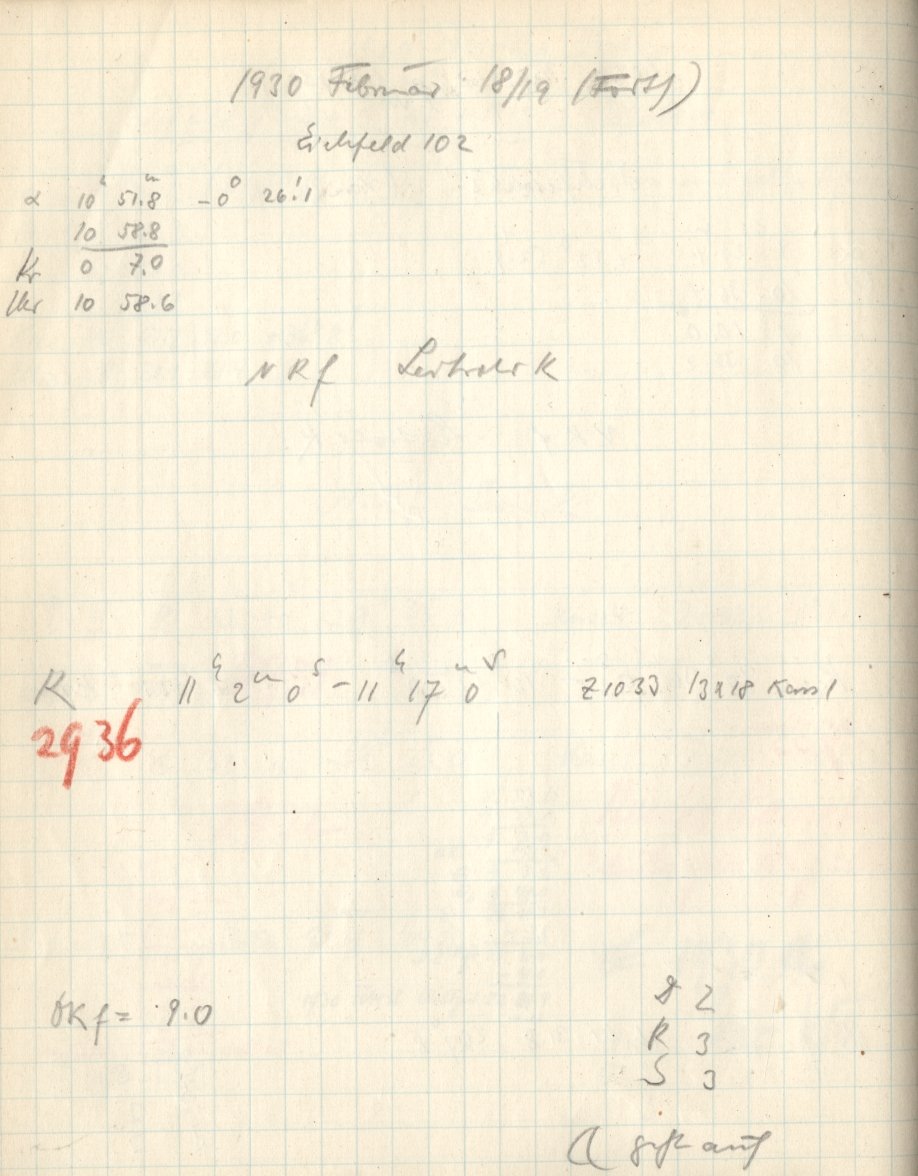 1930 Februar 18/19 (Forts)
Eichfeld 102
α 10ʰ 51.8ᵐ -0° 26!1
10 58.8
Kr 0 7.0
Uhr 10 58.6
N R f Leitrohr K
R 11ʰ 2ᵐ 0ˢ - 11ʰ 17ᵐ 0ˢ Z1033 13x18 Kass 1
2936
OKf = 9.0
D 2
R 3
S 3
☾ geht auf